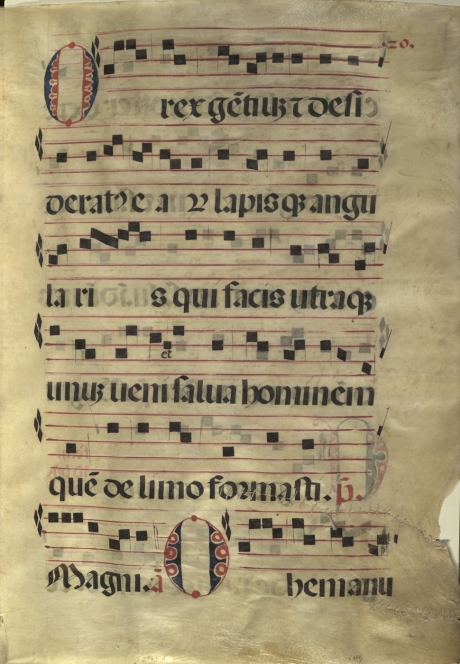 20.
O rex gētiuꝫ ⁊ desi
derat⁹ e a ꝝ lapisqꝫ angu
la ri s qui facis utraqꝫ
et
unuꝫ ueni salua hominem
quē de limo formasti. p̄.
Magni. ā O hemanu